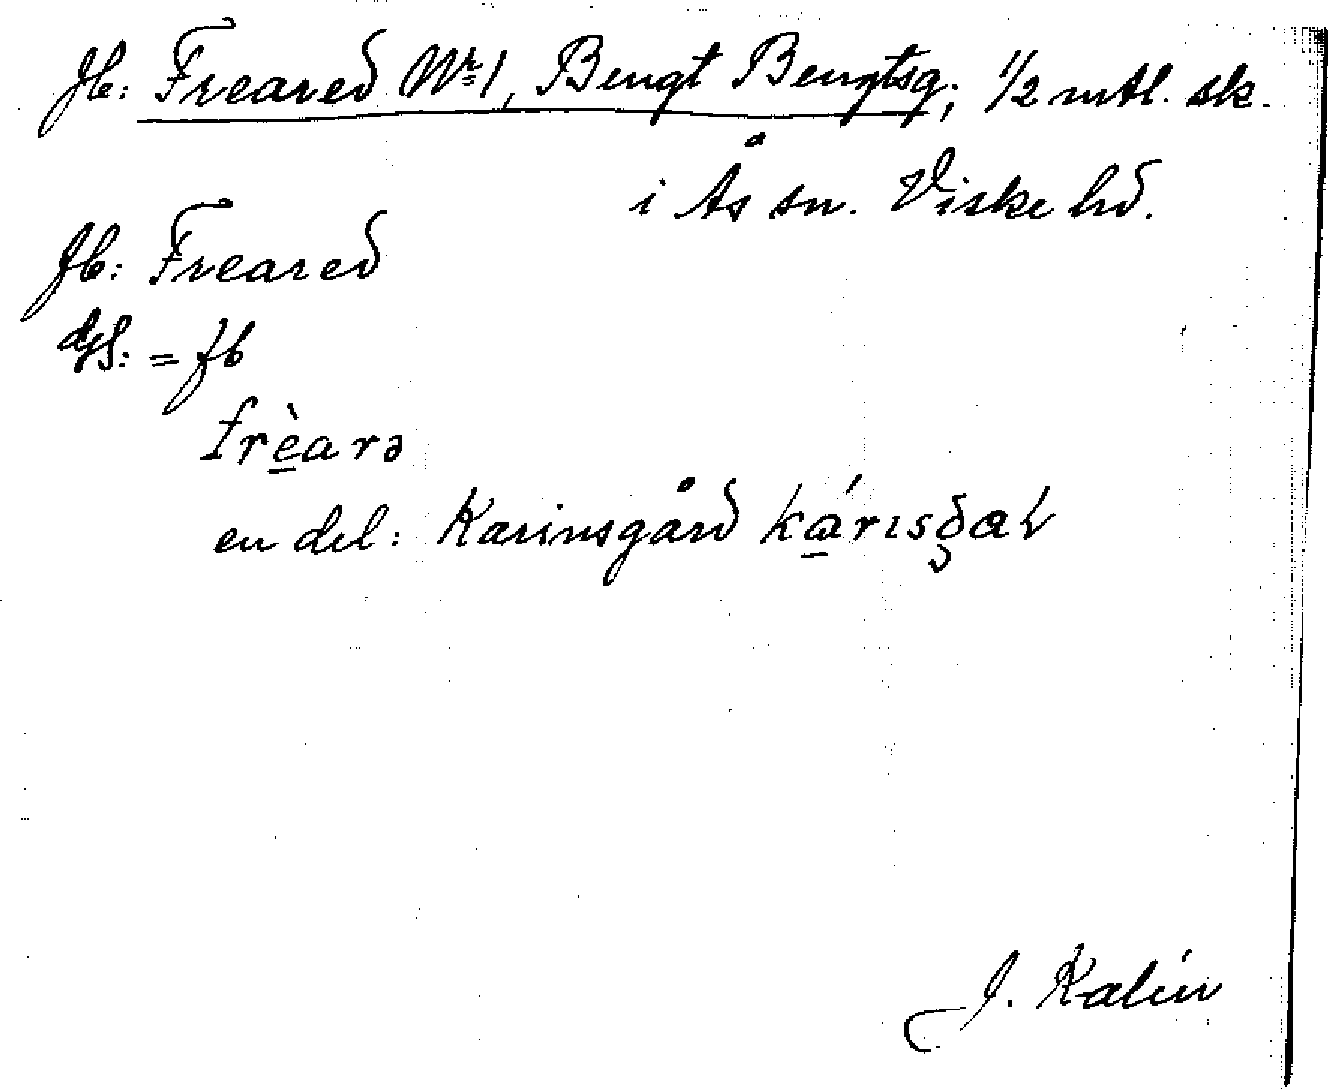 Jb: Freared Nr 1, Bengt Bengtsg; 1/2 mtl. sk.
i Ås sn. Viske hd.
fb: Freared
dgs: = fb
frèarə
en del: Karinsgård
J. Kalén